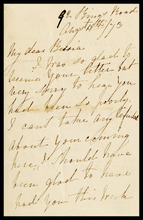 Aug 18th/73
My dear Bessie
I was so glad to
receive your letter but
very sorry to hear you
had been so poorly.
I can't take any
about your coming
here, I should have
been glad to have
had you this week